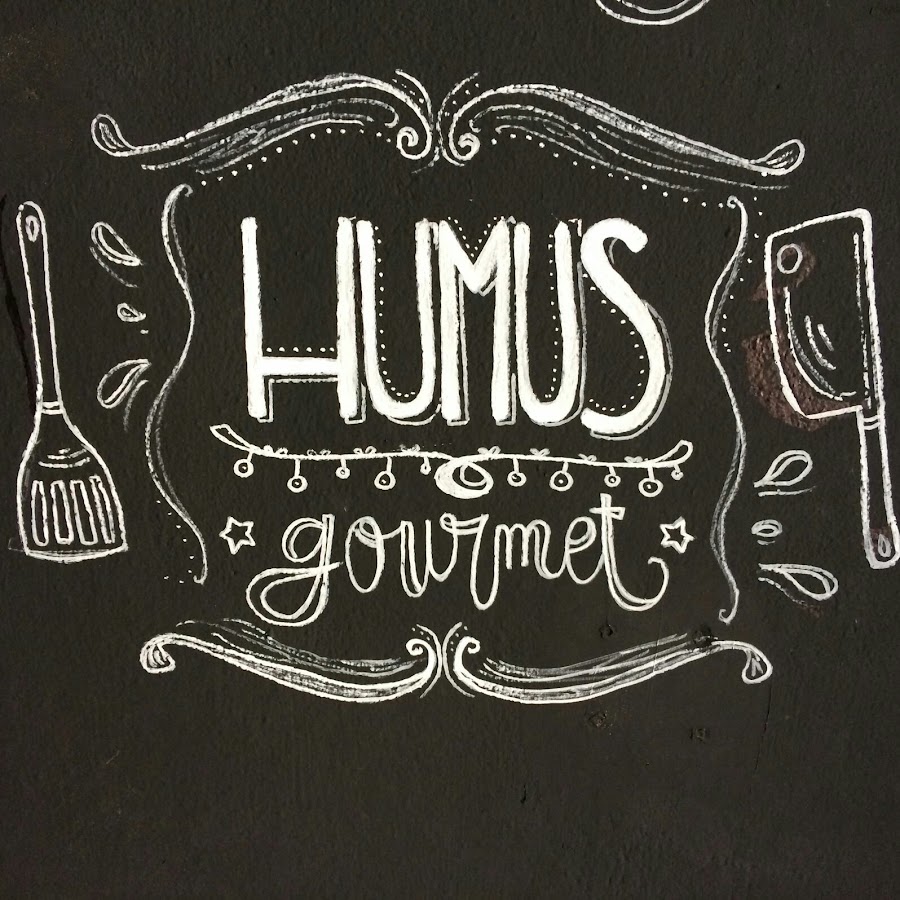 HUMUS
gourmet